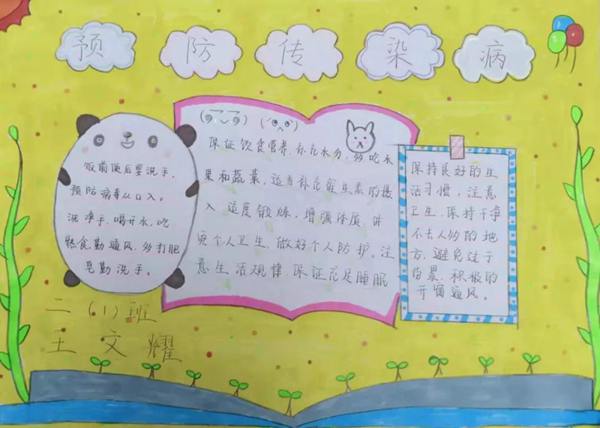 预防传染病
饭前便后要洗手,
预防病毒从口入。
洗净手,喝开水,吃
熟食勤通风,多打肥
皂勤洗手。
保证饮食营养,补充水分,多吃水
果和蔬菜,适当补充维生素的摄
入,适度锻炼,增强体质,讲
究个人卫生,做好个人防护。注
意生活规律,保证充足睡眠
保持良好的生
活习惯,注意
卫生,保持干净
不去人多的地
方,避免过于
伤累,积极的
开窗通风。
二(1)班
王文耀